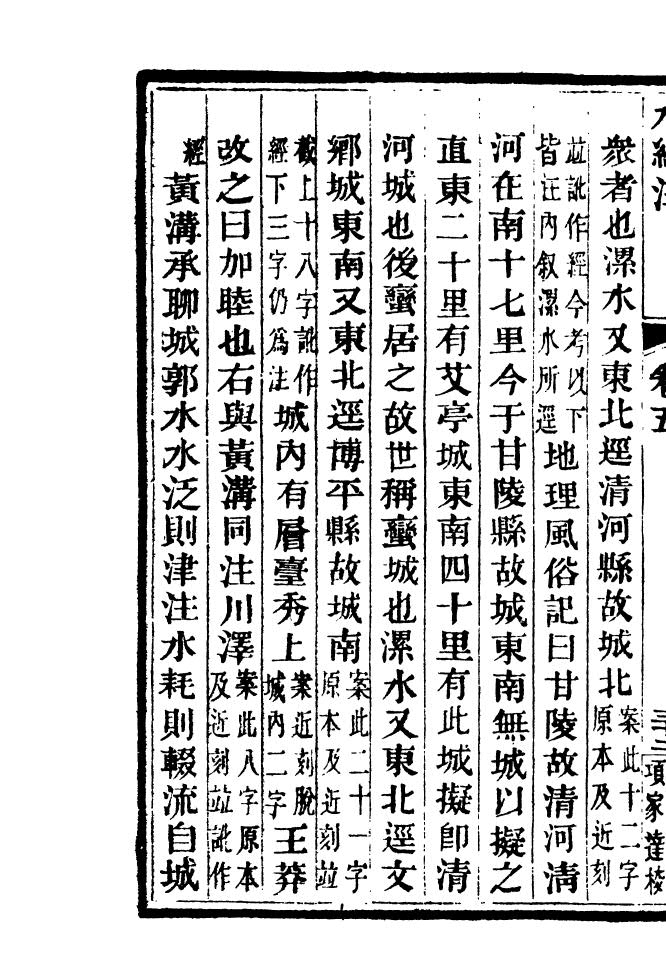 經注 卷五 項家達校
衆者也漯水又東北逕清河縣故城北案此十二字原本及近刻
竝訛作經今考以下皆注內叙漯水所逕地理風俗記曰甘陵故清河清
河在南十七里今于甘陵縣故城東南無城以擬之
直東二十里有艾亭城東南四十里有此城擬卽清
河城也後蠻居之故世稱蠻城也漯水又東北逕文
鄉城東南又東北逕博平縣故城南案此二十一字原本及近刻竝
截上十八字訛作經下三字仍爲注城內有層臺秀上案近刻脫城內二字王莽
改之曰加睦也右與黃溝同注川澤案此八字原本及近刻竝訛作
經黃溝承聊城郭水水泛則津注水耗則輟流自城